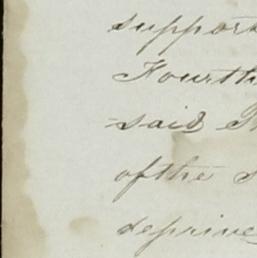 support
Fourth
said
of the
deprive